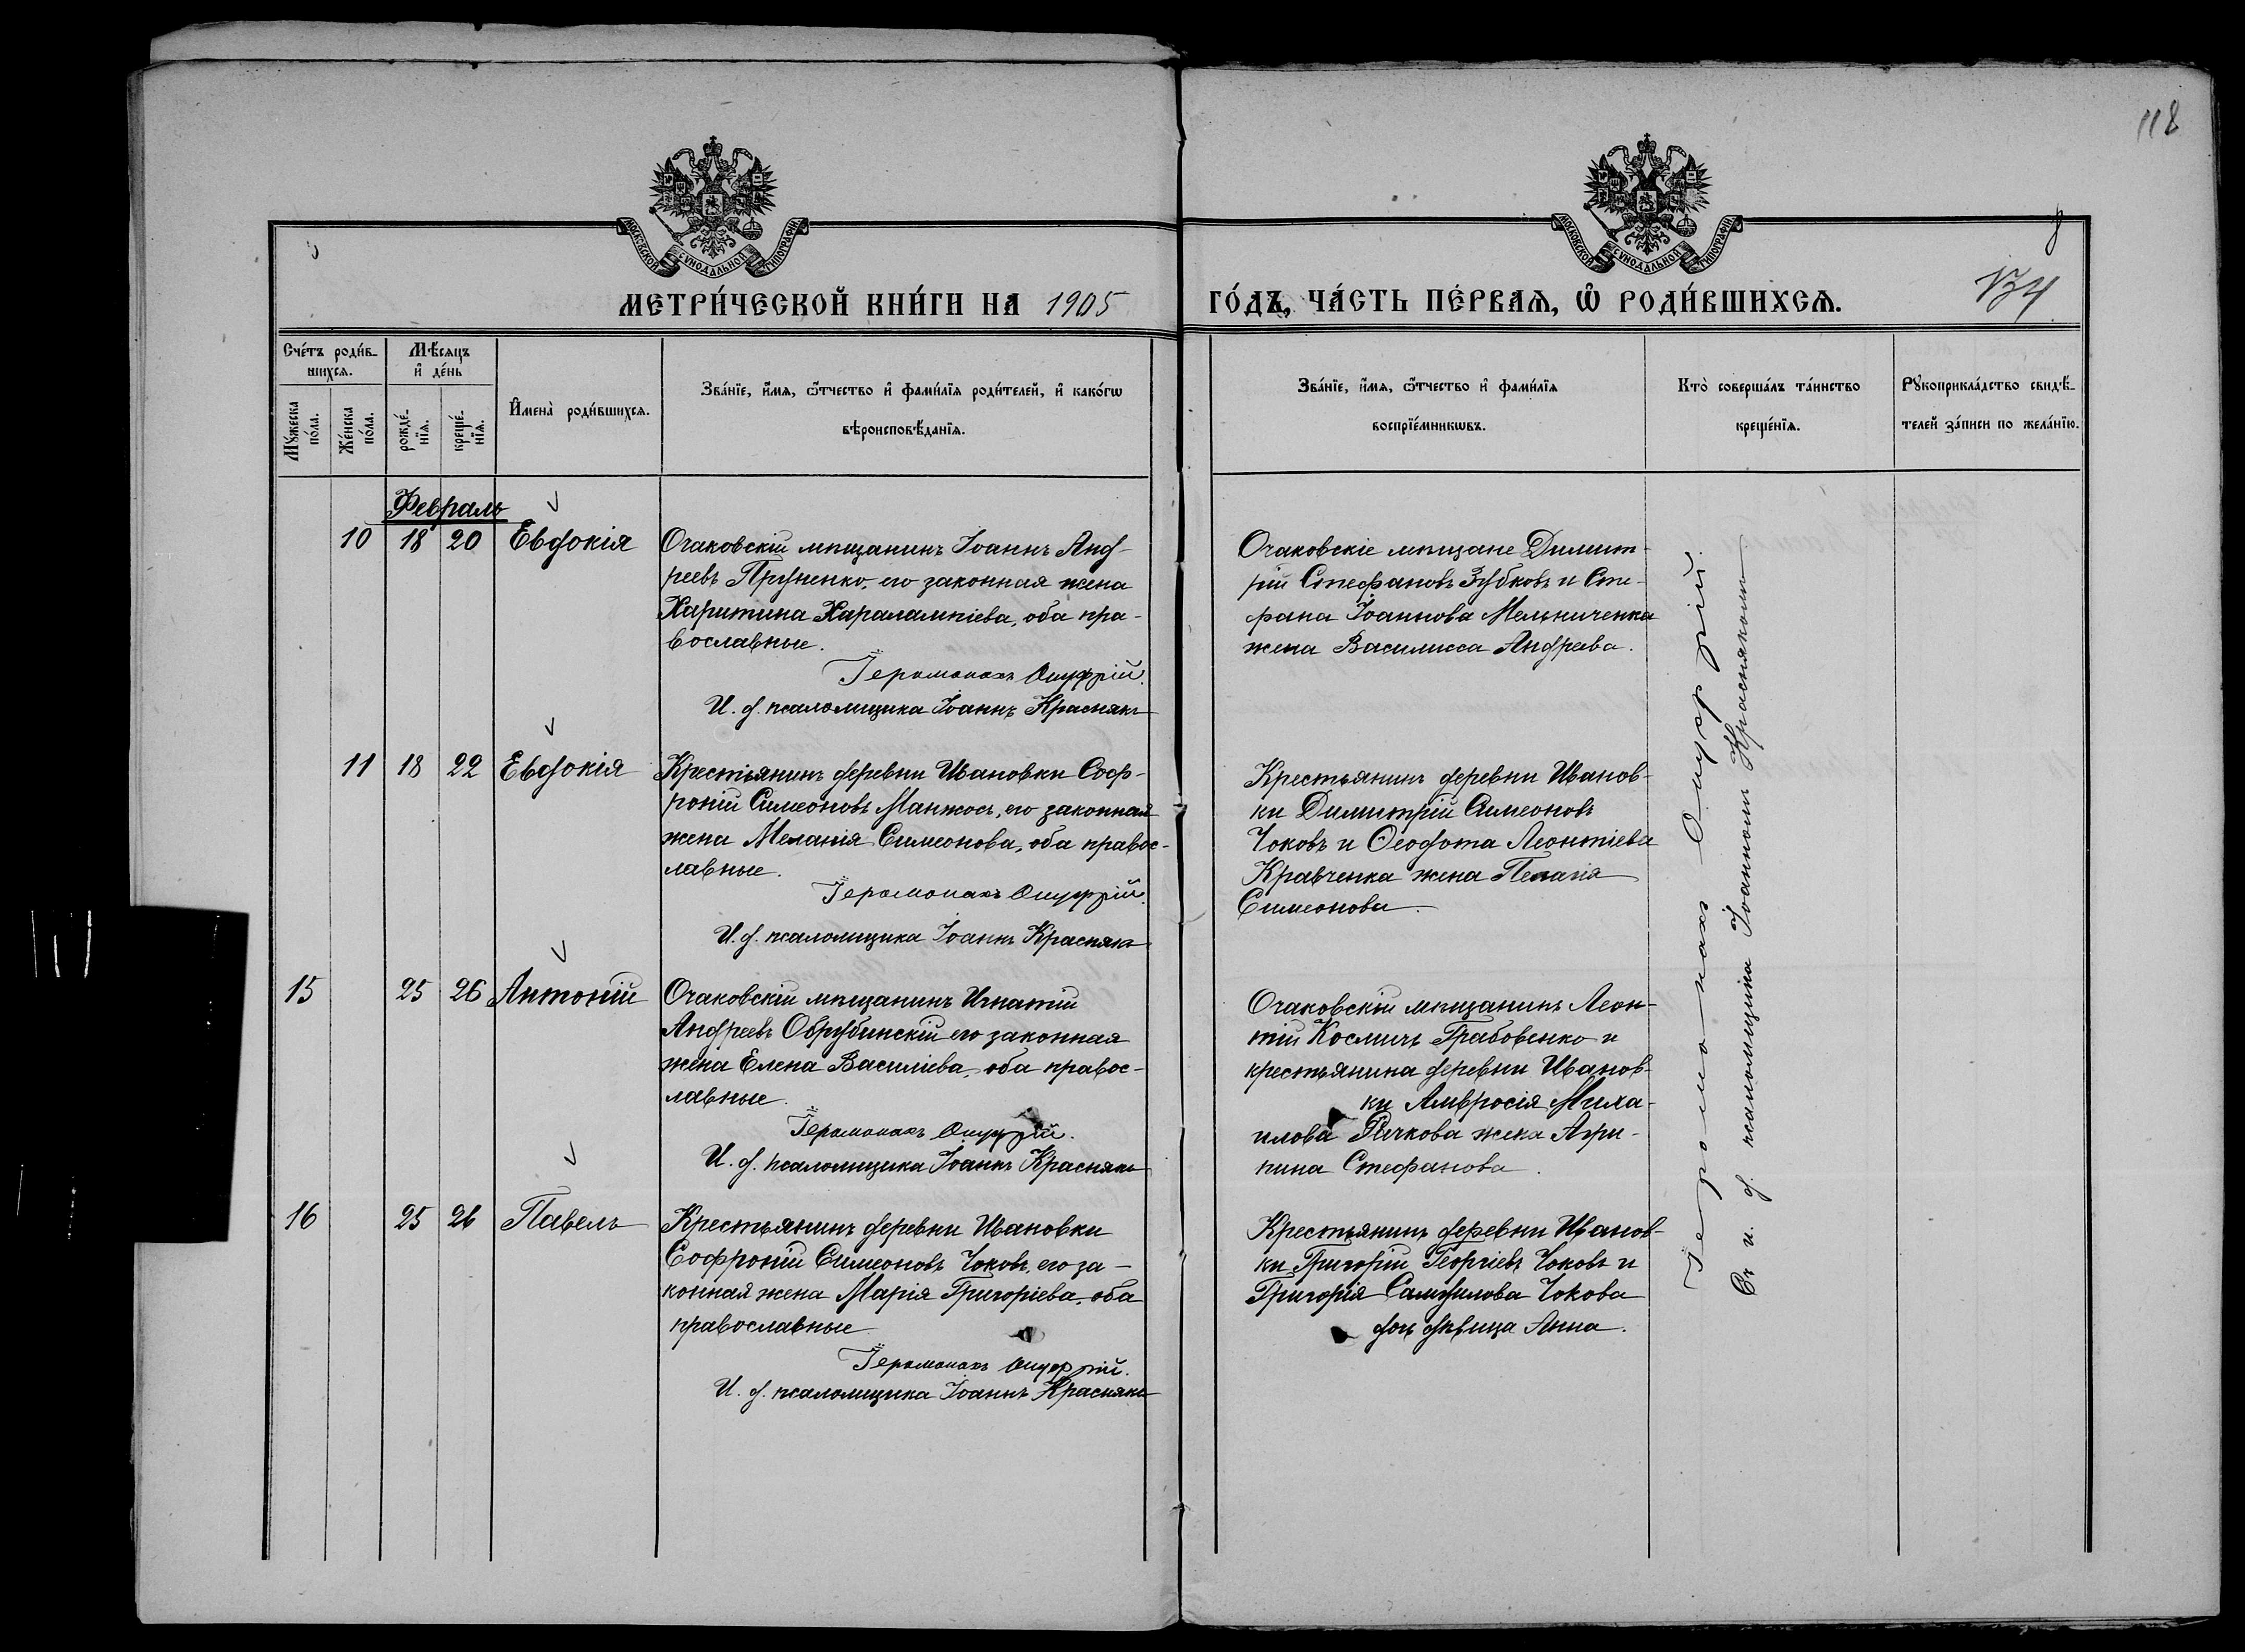 118
МОСКОВСКОЙ СУНОДАЛЬНОЙ ТИПОГРАФІИ
МОСКОВСКОЙ СУНОДАЛЬНОЙ ТИПОГРАФІИ
МЕТРИ́ЧЕСКОЙ КНИ́ГИ НА 1905
ГО́ДЪ, ЧА́СТЬ ПЕ́РВАѦ, Ѽ РОДИ́ВШИХСѦ.
Сче́тъ роди́в-
шихсѧ.
Мѣ́сяцъ
и҆ де́нь
Мꙋ́жеска
по́ла.
Же́нска
по́ла.
рожде́-
нїѧ.
креще́-
нїѧ.
И҆мена̀ роди́вшихсѧ.
Зва́нїе, и҆́мѧ, ѻ҆́тчество и҆ фами́лїѧ роди́телей, и҆ како́гѡ
вѣроисповѣ́данїѧ.
Зва́нїе, и҆́мѧ, ѻ҆́тчество и҆ фами́лїѧ
воспрїе́мникѡвъ.
Кто̀ соверша́лъ та́инство
креще́нїѧ.
Рꙋкоприкла́дство свидѣ́-
телей за́писи по жела́нїю.
Февраль
10 18 20 Евдокія
Очаковскій мѣщанинъ Іоаннъ Анд-
реевъ Пруненко, его законная жена
Харитина Харалампіева, оба пра-
вославные.
Іеромонахъ Онуфрій.
И. д. псаломщика Іоаннъ Краснякъ
Очаковскіе мѣщане Димит-
рій Стефановъ Зубковъ и Сте-
фана Іоаннова Мельниченка
жена Василисса Андреева.
11 18 22 Евдокія
Крестьянинъ деревни Ивановки Соф-
роній Симеоновъ Манжосъ, его законная
жена Меланія Симеонова, оба правос-
лавные.
Іеромонахъ Онуфрій.
И. д. псаломщика Іоаннъ Краснякъ
Крестьянинъ деревни Иванов-
ки Димитрій Симеоновъ
Чоковъ и Ѳеодота Леонтіева
Кравченка жена Пелагія
Симеонова.
15 25 26 Антоній
Очаковскій мѣщанинъ Игнатій
Андреевъ Обрубинскій его законная
жена Елена Василіева, оба правос-
лавные.
Іеромонахъ Онуфрій.
И. д. псаломщика Іоаннъ Краснякъ
Очаковскій мѣщанинъ Леон-
тій Космичъ Грабовенко и
крестьянина деревни Иванов-
ки Амвросія Миха-
илова Рычкова жена Агри-
пина Стефанова.
16 25 26 Павелъ
Крестьянинъ деревни Ивановки
Софроній Симеоновъ Чоковъ, его за-
конная жена Марія Григоріева, оба
православные
Іеромонахъ Онуфрій.
И. д. псаломщика Іоаннъ Краснякъ
Крестьянинъ деревни Иванов-
ки Григорій Георгіевъ Чоковъ и
Григорія Самуилова Чокова
дочь дѣвица Анна.
Іеромонахъ Онуфрій
Съ и. д. псаломщика Іоанномъ Краснякомъ